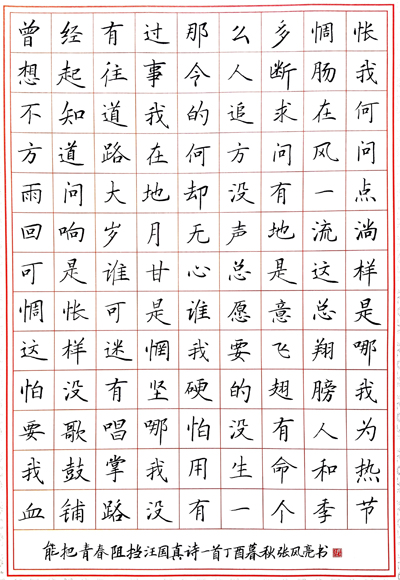 曾经有过那么多惆怅
想起往事令人断肠我
不知道我的追求在何
方道路在何方问风问
雨问大地却没有一点
回响岁月无声地流淌
可是谁甘心总是这样
惆怅可是谁愿意总是
这样迷惘我要飞翔哪
怕没有坚硬的翅膀我
要歌唱哪怕没有人为
我鼓掌我用生命和热
血铺路没有一个季节
能把青春阻挡汪国真诗一首丁酉暮秋张风亮书